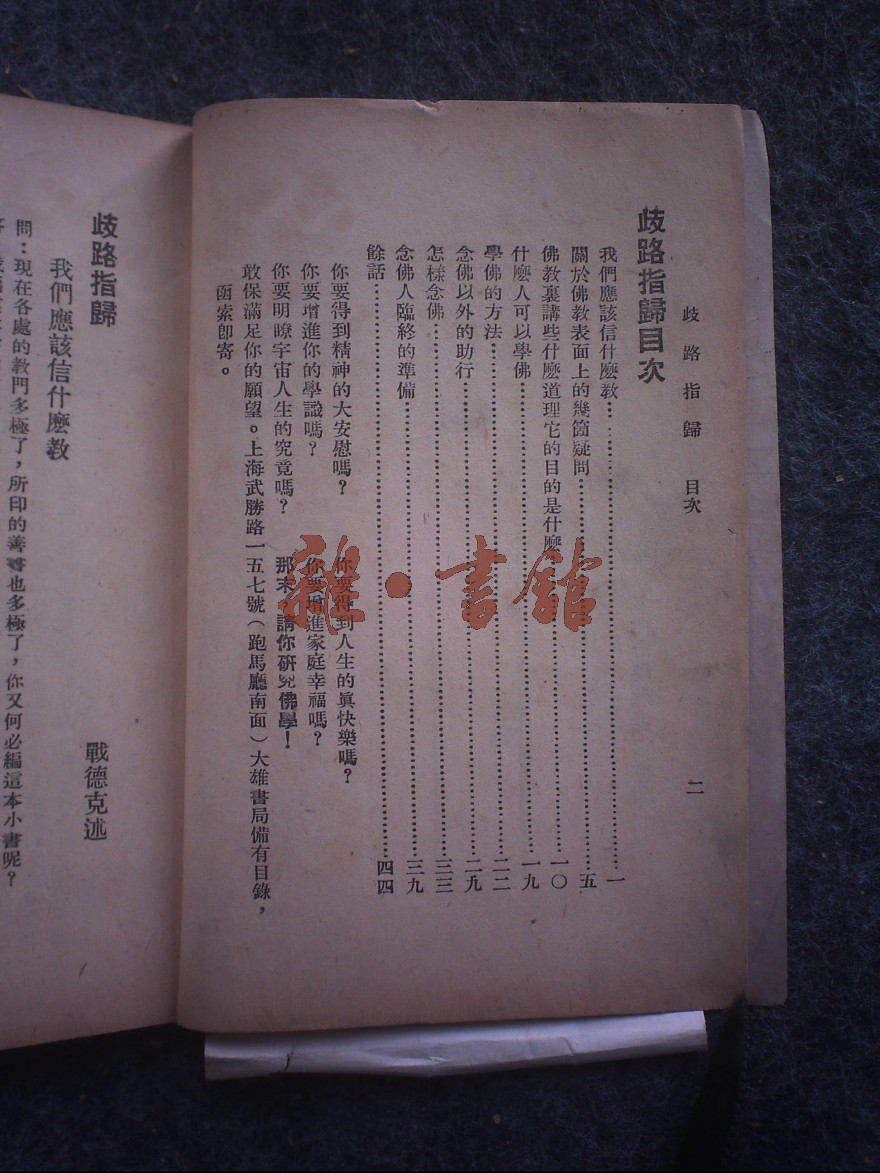 歧路指歸 目次 二
歧路指歸目次
我們應該信什麽教……一
關於佛教表面上的幾箇疑問……五
佛教裏講些什麽道理它的目的是什麽……一〇
什麽人可以學佛……一九
學佛的方法……二二
念佛以外的助行……二九
怎樣念佛……三三
念佛人臨終的準備……三九
餘話……四四
你要得到精神的大安慰嗎？ 你要得到人生的眞快樂嗎？
你要增進你的學識嗎？ 你要增進家庭幸福嗎？
你要明瞭宇宙人生的究竟嗎？ 那末 請你研究佛學！
敢保滿足你的願望。上海武勝路一五七號（跑馬廳南面）大雄書局備有目錄，
函索卽寄。
歧路指歸
戰德克述
我們應該信什麽教
問：現在各處的教門多極了，所印的善書也多極了，你又何必編這本小書呢？
雜·書館